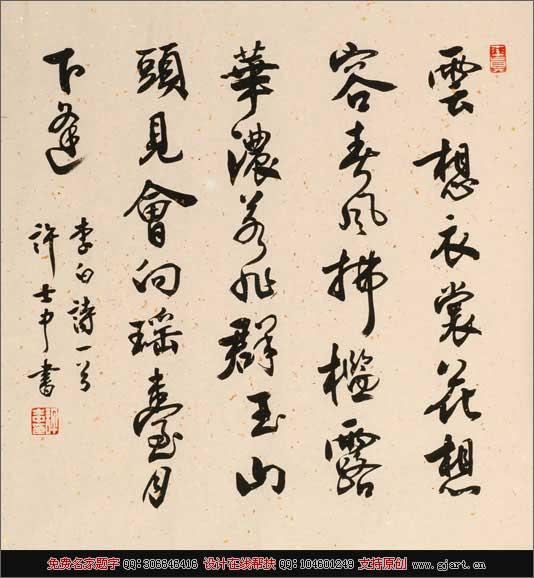 雲想衣裳花想
容春風拂檻露
華濃若非群玉山
頭見會向瑤臺月
下逢
李白詩一首
許士中書
免费名家题字 QQ:306646416 设计在线帮扶 QQ:104601249 支持原创 www.gjart.cn